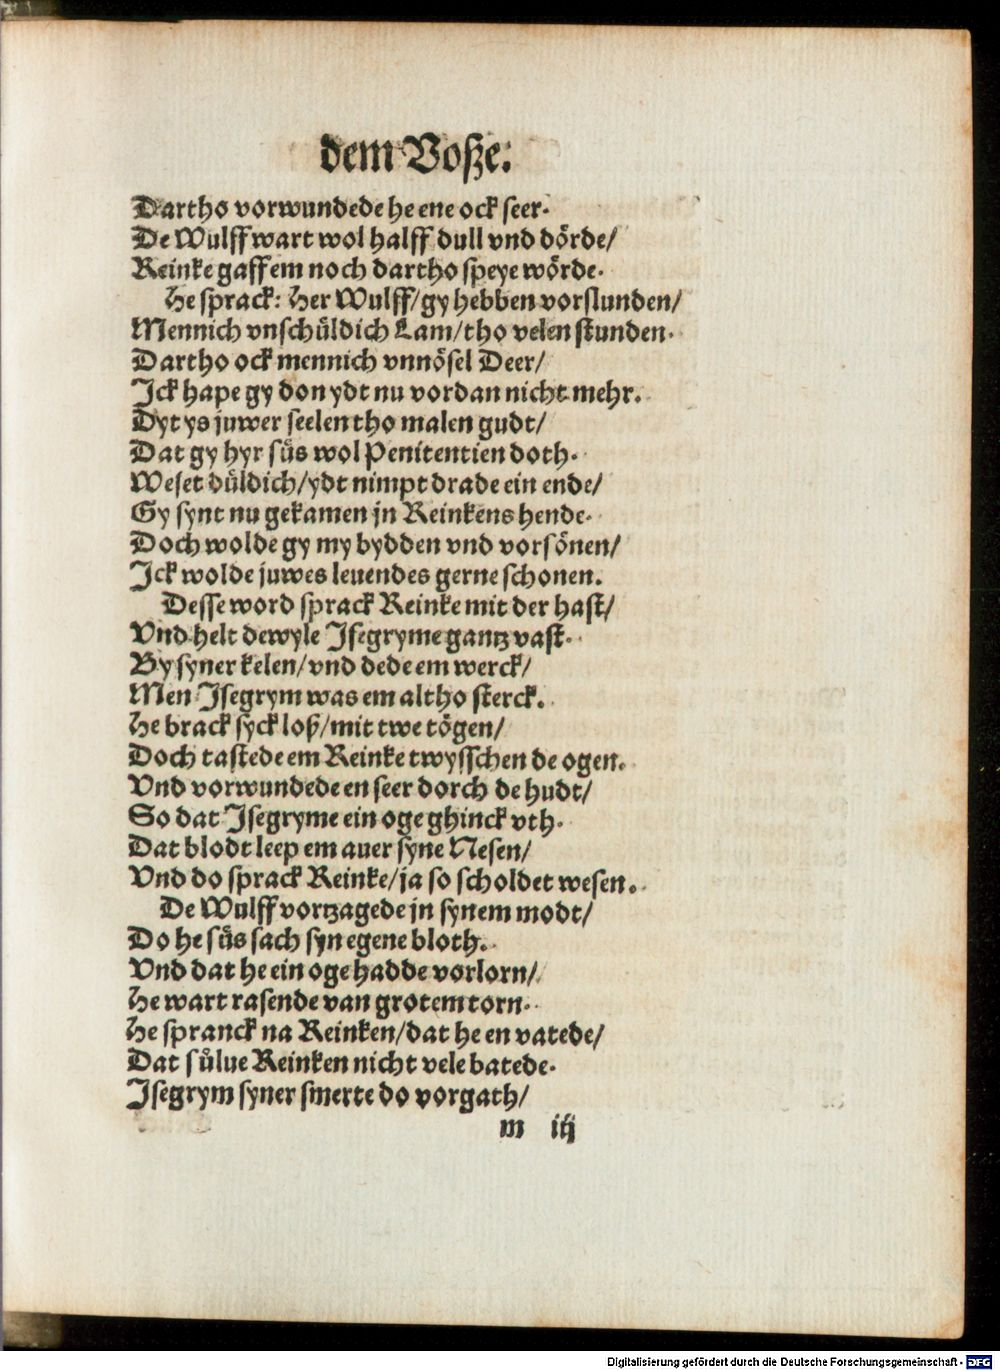 dem Voſze.
Dartho vorwundede he ene ock ſeer.
De Wulff wart wol halff dull vnd doͤrde/
Reinke gaff em noch dartho ſpeye woͤrde.
He ſprack: Her Wulff/ gy hebben vorſlunden/
Mennich vnſchuͤldich Lam/ tho velen ſtunden.
Dartho ock mennich vnnoͤſel Deer/
Jck hape gy don ydt nu vordan nicht mehr.
Dyt ys juwer ſeelen tho malen gudt/
Dat gy hyr ſuͤs wol Penitentien doth.
Weſet duͤldich/ ydt nimpt drade ein ende/
Gy ſynt nu gekamen jn Reinkens hende.
Doch wolde gy my bydden vnd vorſoͤnen/
Jck wolde juwes leuendes gerne ſchonen.
Deſſe word ſprack Reinke mit der haſt/
Vnd helt dewyle Jſegryme gantz vaſt.
By ſyner kelen/ vnd dede em werck/
Men Jſegrym was em altho ſterck.
He brack ſyck loß/ mit twe toͤgen/
Doch taſtede em Reinke twyſſchen de ogen.
Vnd vorwundede en ſeer dorch de hudt/
So dat Jſegryme ein oge ghinck vth.
Dat blodt leep em auer ſyne Neſen/
Vnd do ſprack Reinke/ ja ſo ſcholdet weſen.
De Wulff vortzagede jn ſynem modt/
Do he ſuͤs ſach ſyn egene bloth.
Vnd dat he ein oge hadde vorlorn/
He wart raſende van grotem torn.
He ſpranck na Reinken/ dat he en vatede/
Dat ſuͤlue Reinken nicht vele batede.
Jſegrym ſyner ſmerte do vorgath/
m iij
Digitalisierung gefördert durch die Deutsche Forschungsgemeinschaft - DFG